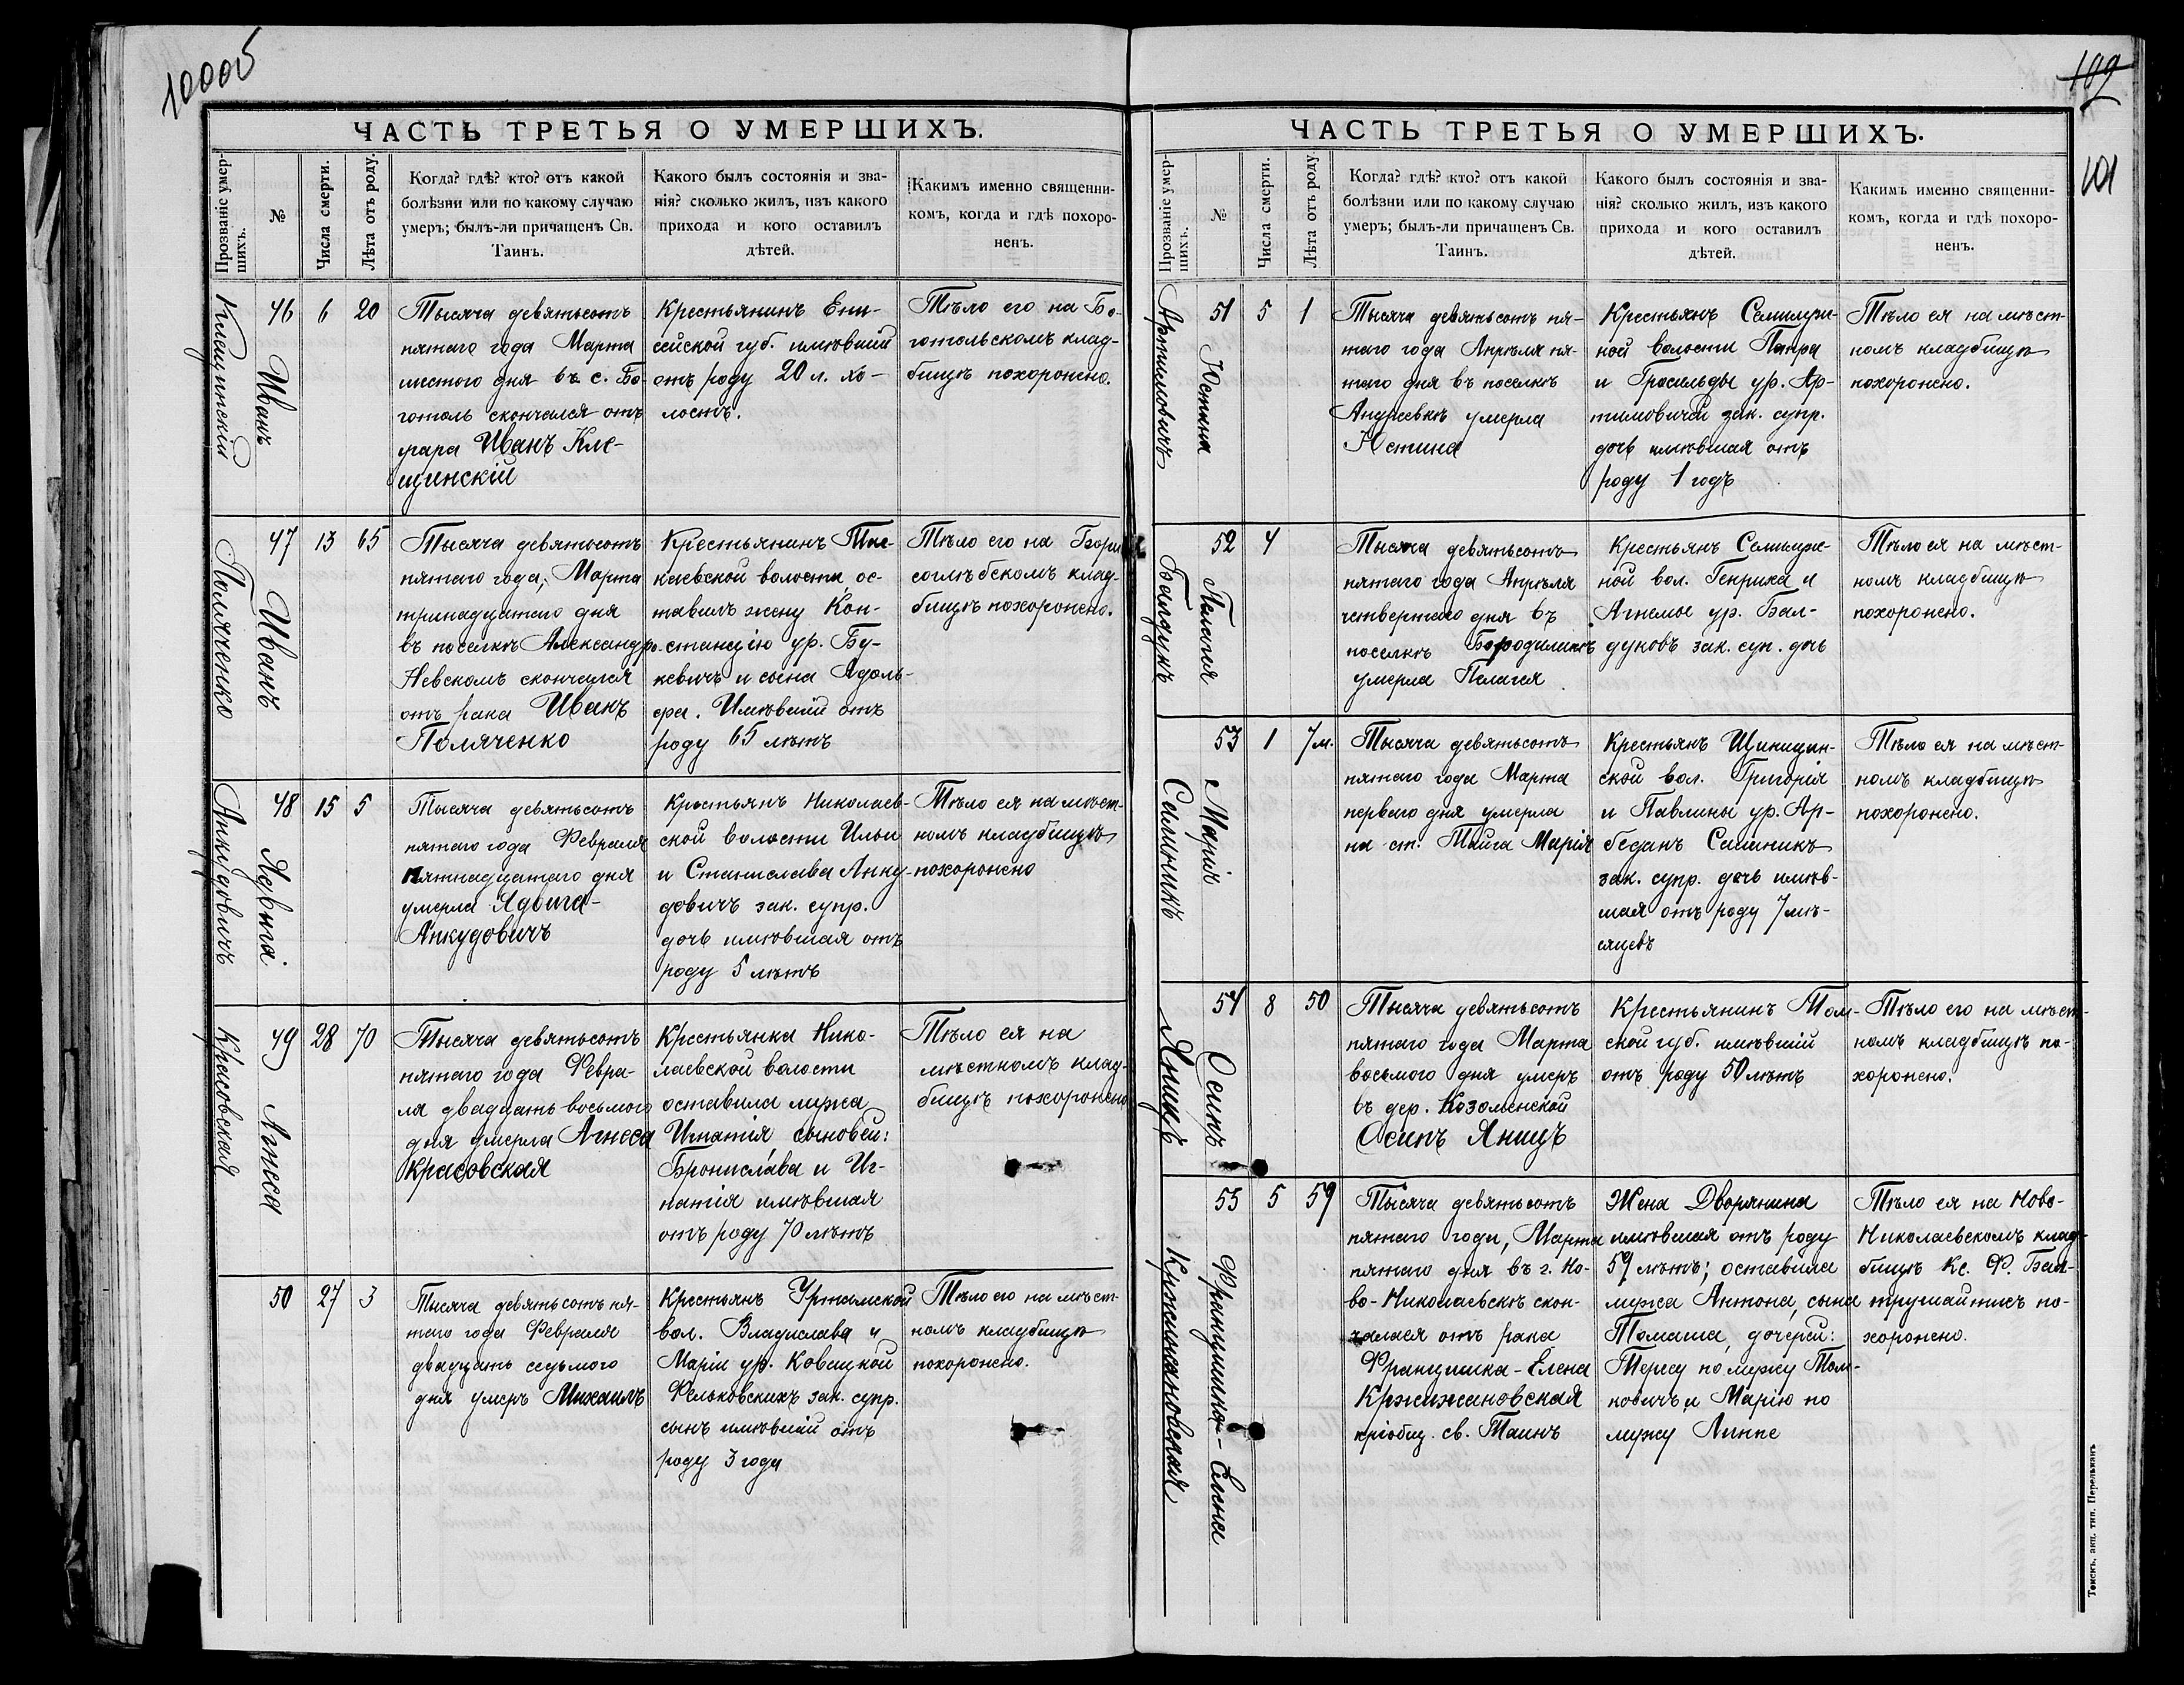 100об
ЧАСТЬ ТРЕТЬЯ О УМЕРШИХЪ.
Прозваніе умер-
шихъ.
№
Числа смерти.
Лѣта отъ роду.
Когда? гдѣ? кто? отъ какой
болѣзни или по какому случаю
умеръ; былъ-ли причащенъ Св.
Таинъ.
Какого былъ состоянія и зва-
нія? сколько жилъ, изъ какого
прихода и кого оставилъ
дѣтей.
Какимъ именно священни-
комъ, когда и гдѣ похоро-
ненъ.
Клещинскій
Иванъ
46 6 20
Тысяча девятьсотъ
пятаго года Марта
шестого дня въ с. Бо-
готолъ скончался отъ
угара Иванъ Кле-
щинскій
Крестьянинъ Ени-
сейской губ. имѣвшій
отъ роду 20 л. хо-
лостъ.
Тѣло его на Бо-
готольскомъ клад-
бищѣ похоронено.
Поляченко
Иванъ
47 13 65
Тысяча девятьсотъ
пятаго года, Марта
тринадцатаго дня
въ поселкѣ Александро-
Невскомъ скончался
отъ рака Иванъ
Поляченко
Крестьянинъ
волости, ос-
тавилъ жену Кон-
станцію ур. Бу-
кевичъ и сына Адоль-
фа. Имѣвшій отъ
роду 65 лѣтъ
Тѣло его на Бори-
соглѣбскомъ клад-
бищѣ похоронено.
Анкудовичъ
Ядвига
48 15 5
Тысяча девятьсотъ
пятаго года Февраля
пятнадцатаго дня
умерла Ядвига-
Анкудовичъ
Крестьянъ Николаев-
ской волости Ильи
и Станислава Анку-
довичъ зак. супр.
дочь имѣвшая отъ
роду 5 лѣтъ
Тѣло ея на мѣст-
номъ кладбищѣ
похоронено
Красовская
Агнеса
49 28 70
Тысяча девятьсотъ
пятаго года Февра-
ля двадцать восьмого
дня умерла Агнеса
Красовская
Крестьянка Нико-
лаевской волости
оставила мужа
Игнатія сыновей:
Бронислава и Иг-
натія имѣвшая
отъ роду 70 лѣтъ
Тѣло ея на
мѣстномъ клад-
бищѣ похоронено
50 27 3
Тысяча девятьсотъ пя-
таго года Февраля
двадцать седьмого
дня умеръ Михаилъ
Крестьянъ Уртамской
вол. Владислава и
Маріи ур. Ковацкой
Фельковскихъ зак. супр.
сынъ имѣвшій отъ
роду 3 года
Тѣло его на мѣст-
номъ кладбищѣ
похоронено.
102
101
ЧАСТЬ ТРЕТЬЯ О УМЕРШИХЪ.
Прозваніе умер-
шихъ.
№
Числа смерти.
Лѣта отъ роду.
Когда? гдѣ? кто? отъ какой
болѣзни или по какому случаю
умеръ; былъ-ли причащенъ Св.
Таинъ.
Какого былъ состоянія и зва-
нія? сколько жилъ, изъ какого
прихода и кого оставилъ
дѣтей.
Какимъ именно священни-
комъ, когда и гдѣ похоро-
ненъ.
Артимовичъ
Юстина
51 5 1
Тысяча девятьсотъ пя-
таго года Апрѣля пя-
таго дня въ поселкѣ
умерла
Юстина
Крестьянъ Семилуж-
ной волости Петра
и ур. Ар-
тимовичей зак. супр.
дочь имѣвшая отъ
роду 1 годъ
Тѣло ея на мѣст-
номъ кладбищѣ
похоронено.
Балдукъ
Пелагея
52 4
Тысяча девятьсотъ
пятаго года Апрѣля
четвертаго дня въ
поселкѣ
умерла Пелагея
Крестьянъ Семилуж-
ной вол. Генриха и
ур. Бал-
дуковъ зак. суп. дочь
Тѣло ея на мѣст-
номъ кладбищѣ
похоронено.
Салиникъ
Марія
53 1 7м.
Тысяча девятьсотъ
пятаго года Марта
перваго дня умерла
на ст. Тайга Марія
Крестьянъ
ской вол. Григорія
и Павлины ур. Ар-
беданъ Салиникъ
зак. супр. дочь имѣв-
шая отъ роду 7 мѣ-
сяцевъ
Тѣло ея на мѣст-
номъ кладбищѣ
похоронено.
Яницъ
Осипъ
54 8 50
Тысяча девятьсотъ
пятаго года Марта
восьмого дня умеръ
въ дер.
Осипъ Яницъ
Крестьянинъ Том-
ской губ. имѣвшій
отъ роду 50 лѣтъ
Тѣло его на мѣст-
номъ кладбищѣ по-
хоронено.
Кржижановская
Францишка-Елена
55 5 59
Тысяча девятьсотъ
пятаго года, Марта
пятаго дня въ г. Но-
во-Николаевскѣ скон-
чалася отъ рака
Францишка-Елена
Кржижановская
пріобщ. св. Таинъ
Жена Дворянина
имѣвшая отъ роду
59 лѣтъ; оставила
мужа Антона, сына
Томаша, дочерей:
Тересу по мужу Том-
ковичъ и Марію по
мужу Линпе
Тѣло ея на Ново-
Николаевскомъ клад-
бищѣ Кс. Ф. Бал-
трушайтисъ по-
хоронено.
Томскъ, акц. тип. Перельманъ